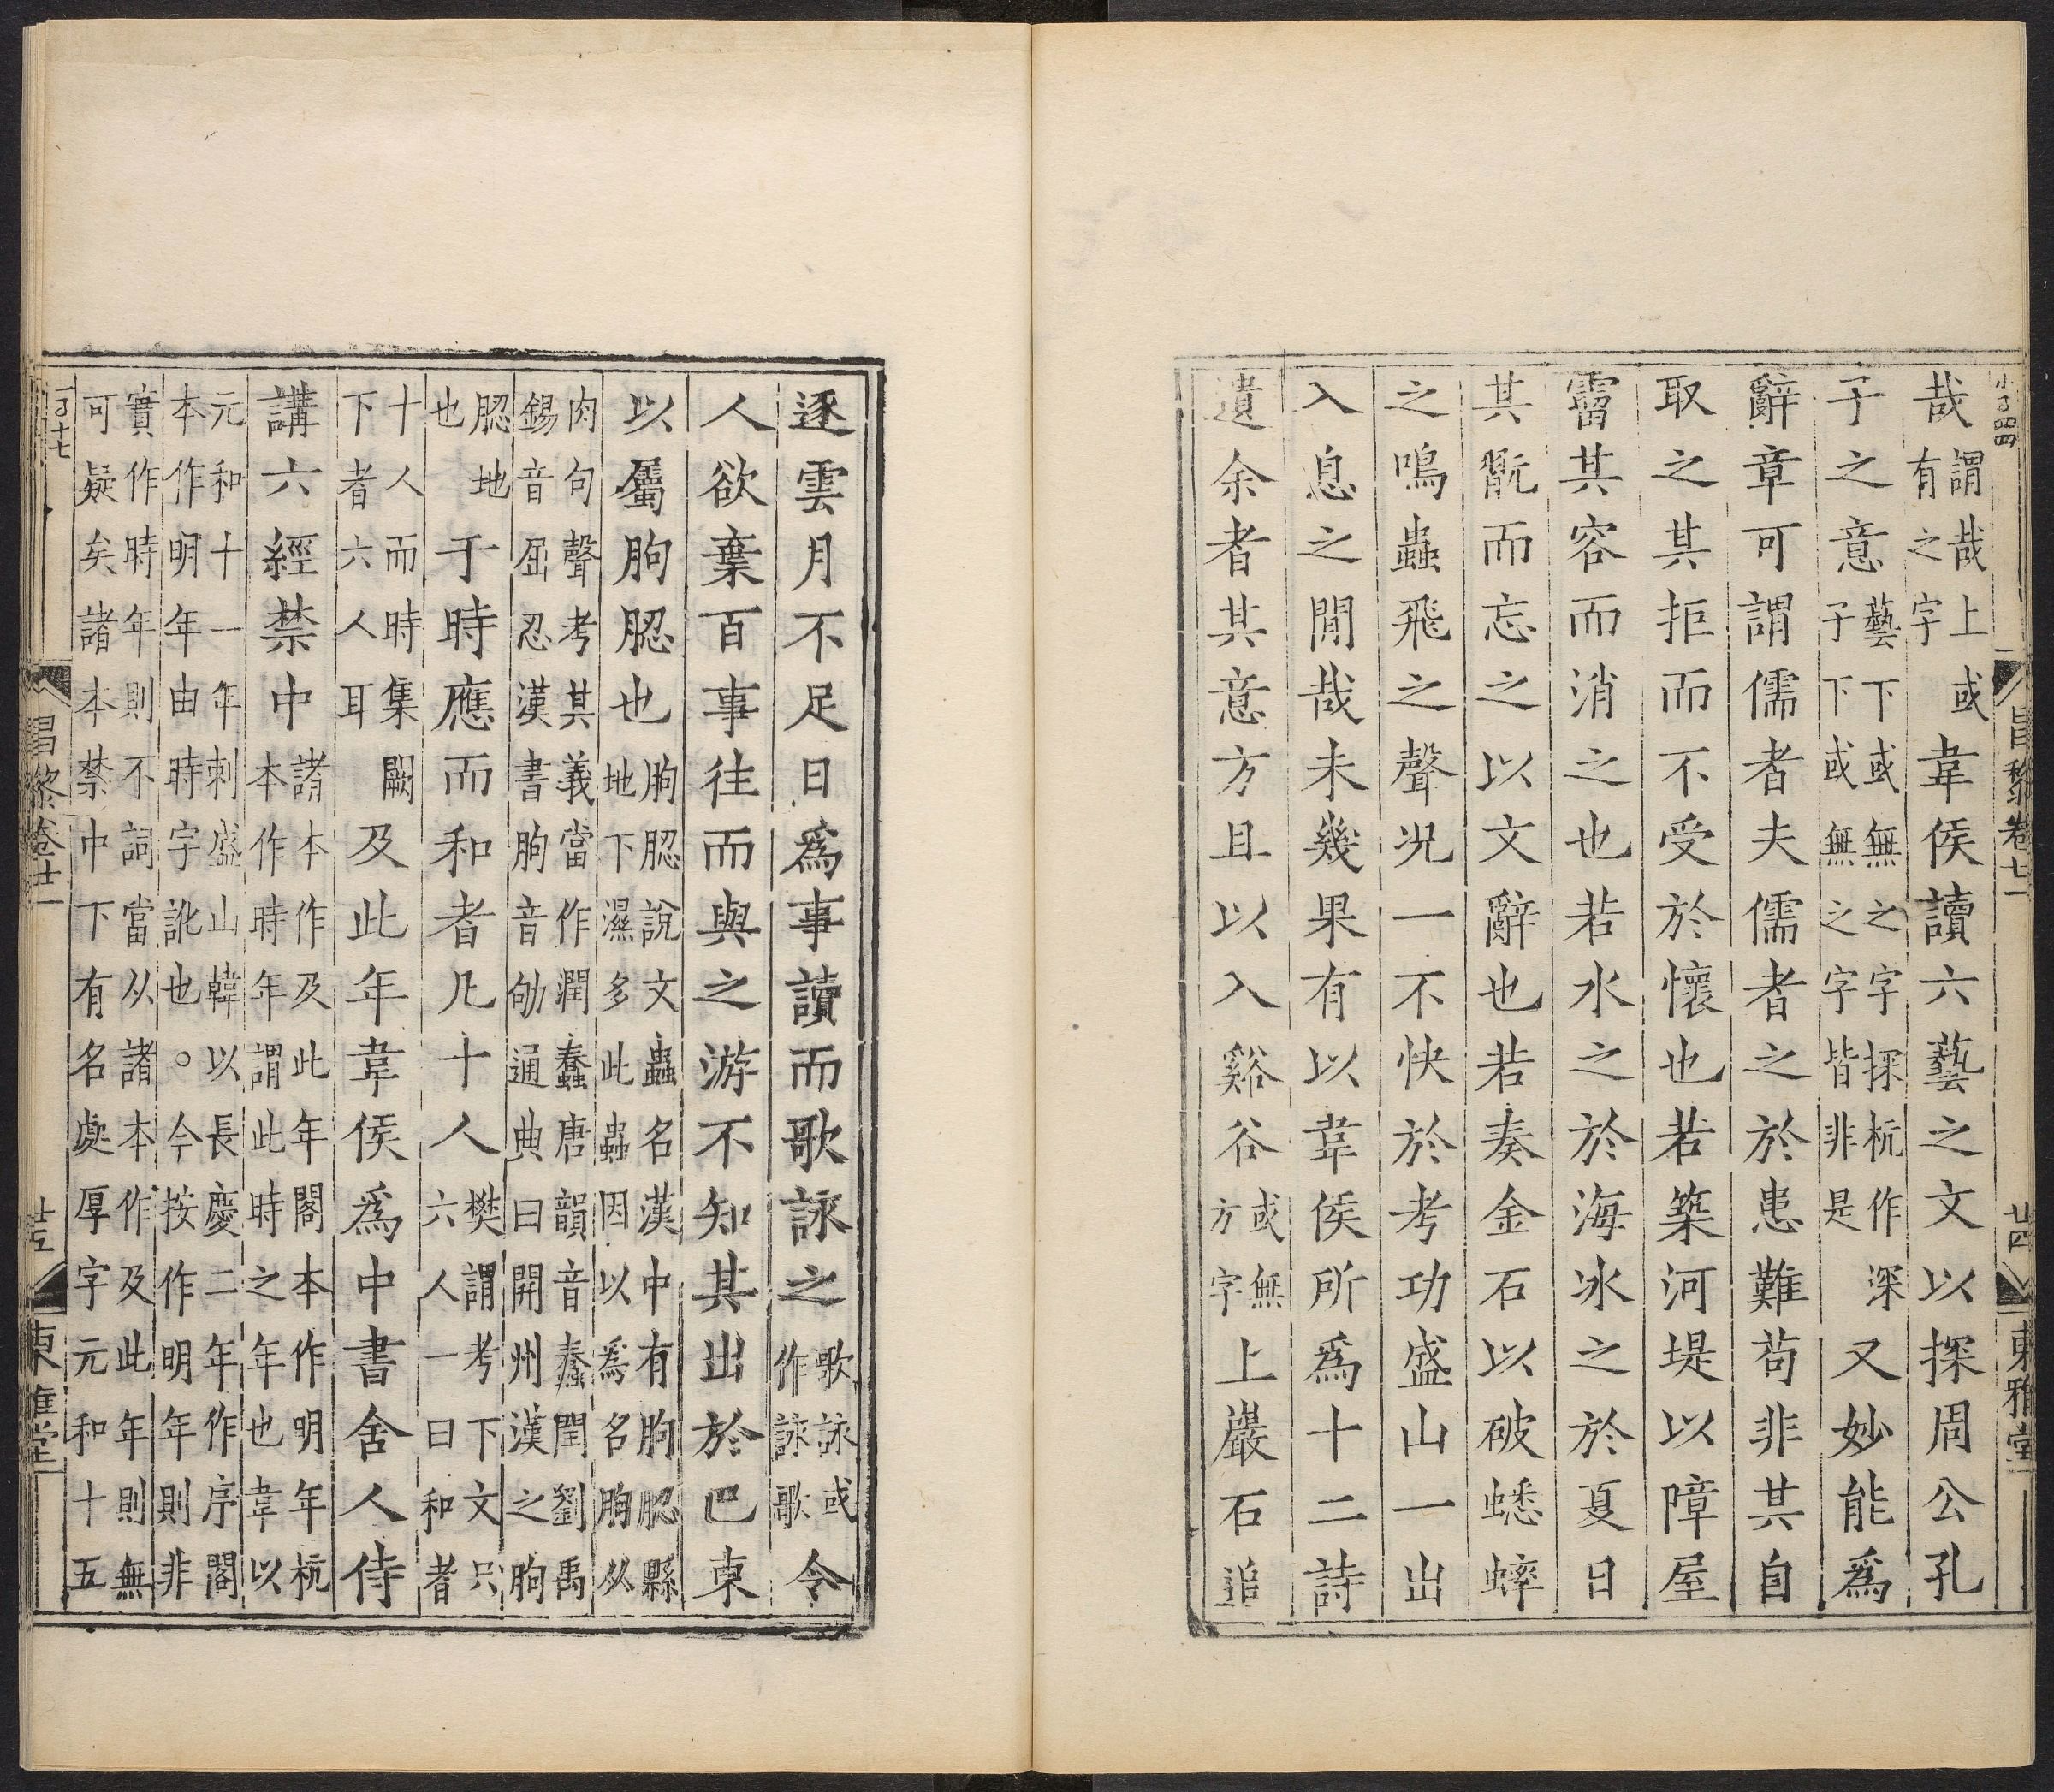 昌黎卷廿一　廿四　東雅堂
哉謂哉上或有之字韋侯讀六藝之文以探周公孔
子之意藝下或無之字探杭作深子下或無之字皆非是又妙能爲
辭章可謂儒者夫儒者之於患難苟非其自
取之其拒而不受於懷也若築河堤以障屋
霤其容而消之也若水之於海冰之於夏日
其翫而忘之以文辭也若奏金石以破蟋蟀
之鳴蟲飛之聲况一不快於考功盛山一出
入息之閒哉未幾果有以韋侯所爲十二詩
遺余者其意方且以入谿谷或無方字上巖石追
逐雲月不足日爲事讀而歌詠之歌詠或作詠歌令
人欲棄百事往而與之游不知其出於巴東
以屬朐䏰也朐䏰說文蟲名漢中有朐䏰縣地下濕多此蟲因以爲名朐从
肉句聲考其義當作潤蠢唐韻音蠢閏劉禹錫音屈忍漢書朐音劬通典曰開州漢之朐
䏰地也于時應而和者凡十人樊謂考下文只六人一曰和者
十人而時集闕下者六人耳及此年韋侯爲中書舍人侍
講六經禁中諸本作及此年閣本作明年杭本作時年謂此時之年也韋以
元和十一年刺盛山韓以長慶二年作序閣本作明年由時字訛也。今按作明年則非
實作時年則不詞當从諸本作及此年則無可疑矣諸本禁中下有名處厚字元和十五
昌黎卷廿一　廿五　東雅堂